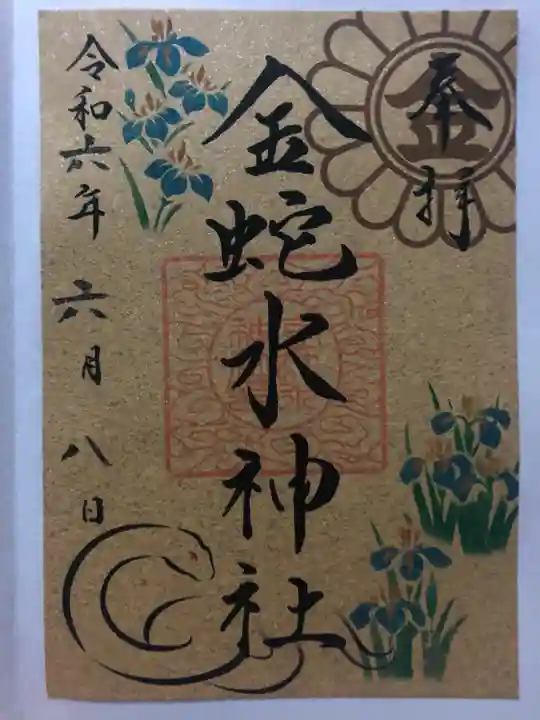 奉拝
金
金蛇水神社
令和六年 六月 八日